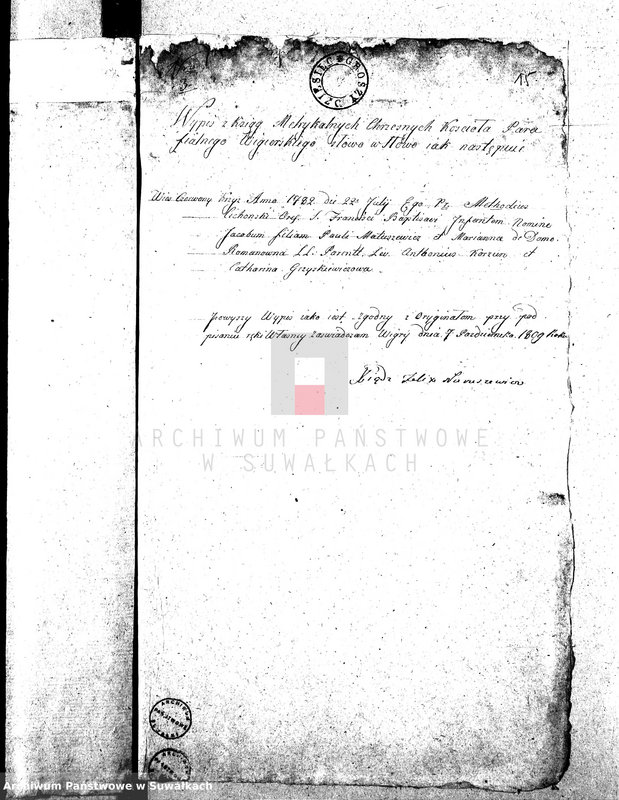 15
DZIESIĘĆ GROSZY
Wypis z Ksiąg Metrykalnych Chrzesnych Kościoła Para
fialnego Wigierskiego słowo w słowo iak następuie
Wieś Czerwony Krzyż Anno 1782 die 22 Julij Ego Pr. Methodius
Cichonski Ord. S. Francisci Baptisavi Infantem Nomine
Jacobum filium Pauli Matuszewicz et Marianna de Domo
Romanowna LL. Parentt. Lev. Antonius Korzun et
Catharina Gryskiewiczowa
Powyszy Wypis iako iest zgodny z Oryginałem przy pod
pisaniu ręki Własney zaswiadczam Wigry dnia 7 Pazdziernika 1809 Roku
Xiądz Felix Naruszewicz
ARCHIWUM PAŃSTWOWE
W SUWAŁKACH
ARCHIWUM PAŃSTWOWE
Archiwum Państwowe w Suwałkach